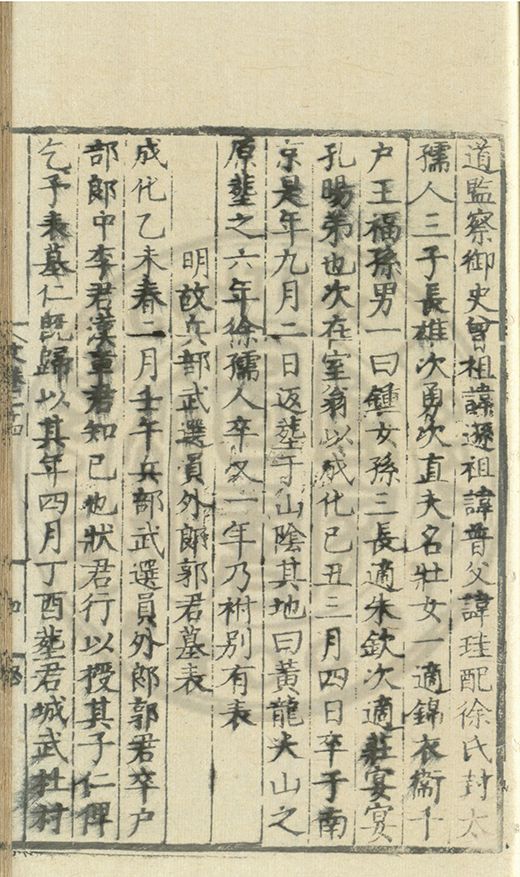 道監察御史曾祖諱遜祖諱普父諱珪配徐氏封太
孺人三子長雄次勇次直夫名壯女一適錦衣衞千
户王福孫男一曰鍾女孫三長適朱欽次適莊宴宴
孔暘弟也次在室翁以成化己丑三月四日卒于南
京是年九月二日返塟于山隂其地曰黃龍尖山之
原塟之六年徐孺人卒又一年乃祔别有表
明故兵部武選員外郎郭君墓表
成化乙未春二月壬午兵部武選員外郎郭君卒户
部郎中李君漢章君知已也狀君行以授其子仁俾
乞予表墓仁旣歸以其年四月丁酉塟君城武杜村